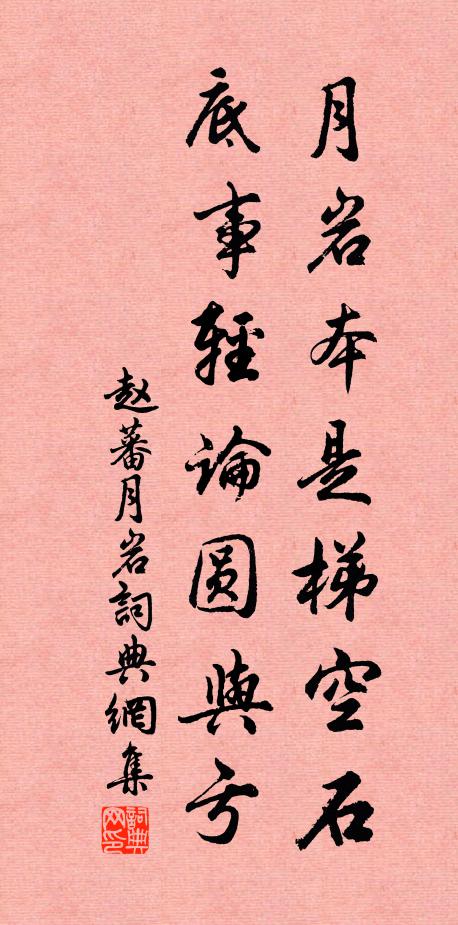 月岩本是梯空石
底事輕論圆與亏
赵蕃月岩詞典網集
詞典网印